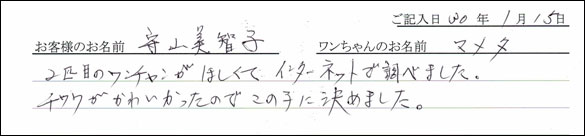 ご記入日 30 年 1 月 15 日
お客様のお名前 守山美智子 ワンちゃんのお名前 マメタ
2匹目のワンチャンがほしくて インターネットで調べました。
チワワがかわいかったので この子に決めました。